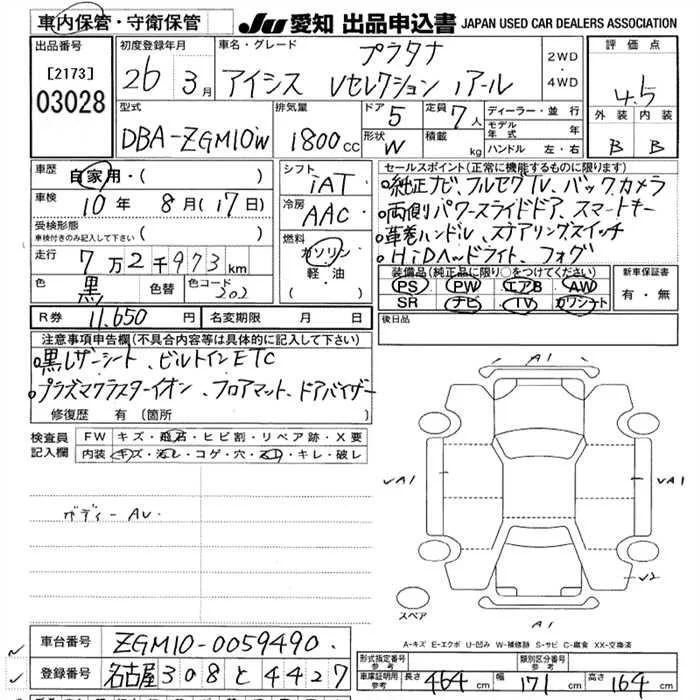 車内保管・守衛保管
JU 愛知 出品申込書 JAPAN USED CAR DEALERS ASSOCIATION
出品番号
[2173]
03028
初度登録年月
26 3月
車名・グレード
プラタナ
アイシス Vセレクション
2WD
・
4WD
評価点
4.5
外装 内装
B B
型式
DBA-ZGM10W
排気量
1800cc
ドア 5
形状 W
定員 7人
積載 kg
ディーラー・並行
モデル年式 年
ハンドル 左・右
車歴
自家用・( )
車検
10年 8月(17日)
受検形態
車検付きのみ記入して下さい ( )
走行
7万2千973km
色 黒 色替 色コード 202
シフト
iAT
冷房
AAC
燃料
ガソリン
軽・油
( )
セールスポイント(正常に機能するものに限ります)
純正ナビ、フルセグTV、バックカメラ
両側パワースライドドア、スマートキー
革巻ハンドル、ステアリングスイッチ
HiDヘッドライト、フォグ
装備品(純正品に限り○をつけてください)
PS PW エアB AW
SR ナビ TV カワシート
新車保証書
有・無
R券 11,650円 名変期限 月 日
後日品
注意事項申告欄(不具合内容等は具体的に記入して下さい)
黒レザーシート、ビルトインETC
プラズマクラスターイオン、フロアマット、ドアバイザー
修復歴 有(箇所 )
検査員記入欄
FW キズ・飛石・ヒビ割・リペア跡・X要
内装 キズ・汚レ・コゲ・穴・・キレ・破レ
ボディーAU
A1
VA1
VA1
V2
A1
スペア
A-キズ E-エクボ U-凹み W-補修跡 S-サビ C-腐食 XX-交換済
車台番号 ZGM10-0059490
登録番号 名古屋 308 と 4427
形式指定番号 参考
類別区分番号 参考
車庫証明用 参考 長さ 464cm 幅 171cm 高さ 164cm